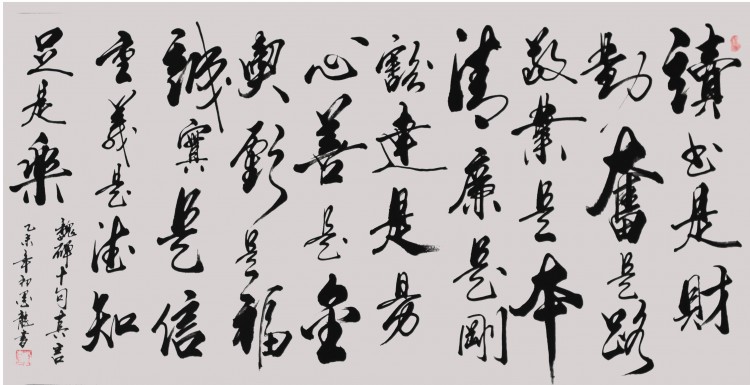 讀書是財
勤奮是路
敬業是本
清廉是剛
豁達是勇
心善是金
喫虧是福
誠實是信
重義是德知
足是樂
魏碑十句真言
乙未 初墨龍書